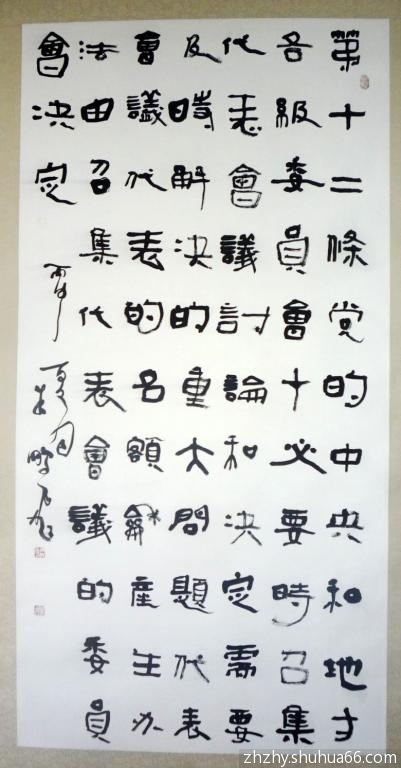 第十二條党的中央和地方
各級委員會十必要時召集
代表會議討論和决定需要
及時解决的重大問題代表
會議代表的名額龢產生办
法由召集代表會議的委員
會决定
丙申夏月
zhzhy.shuhua66.com